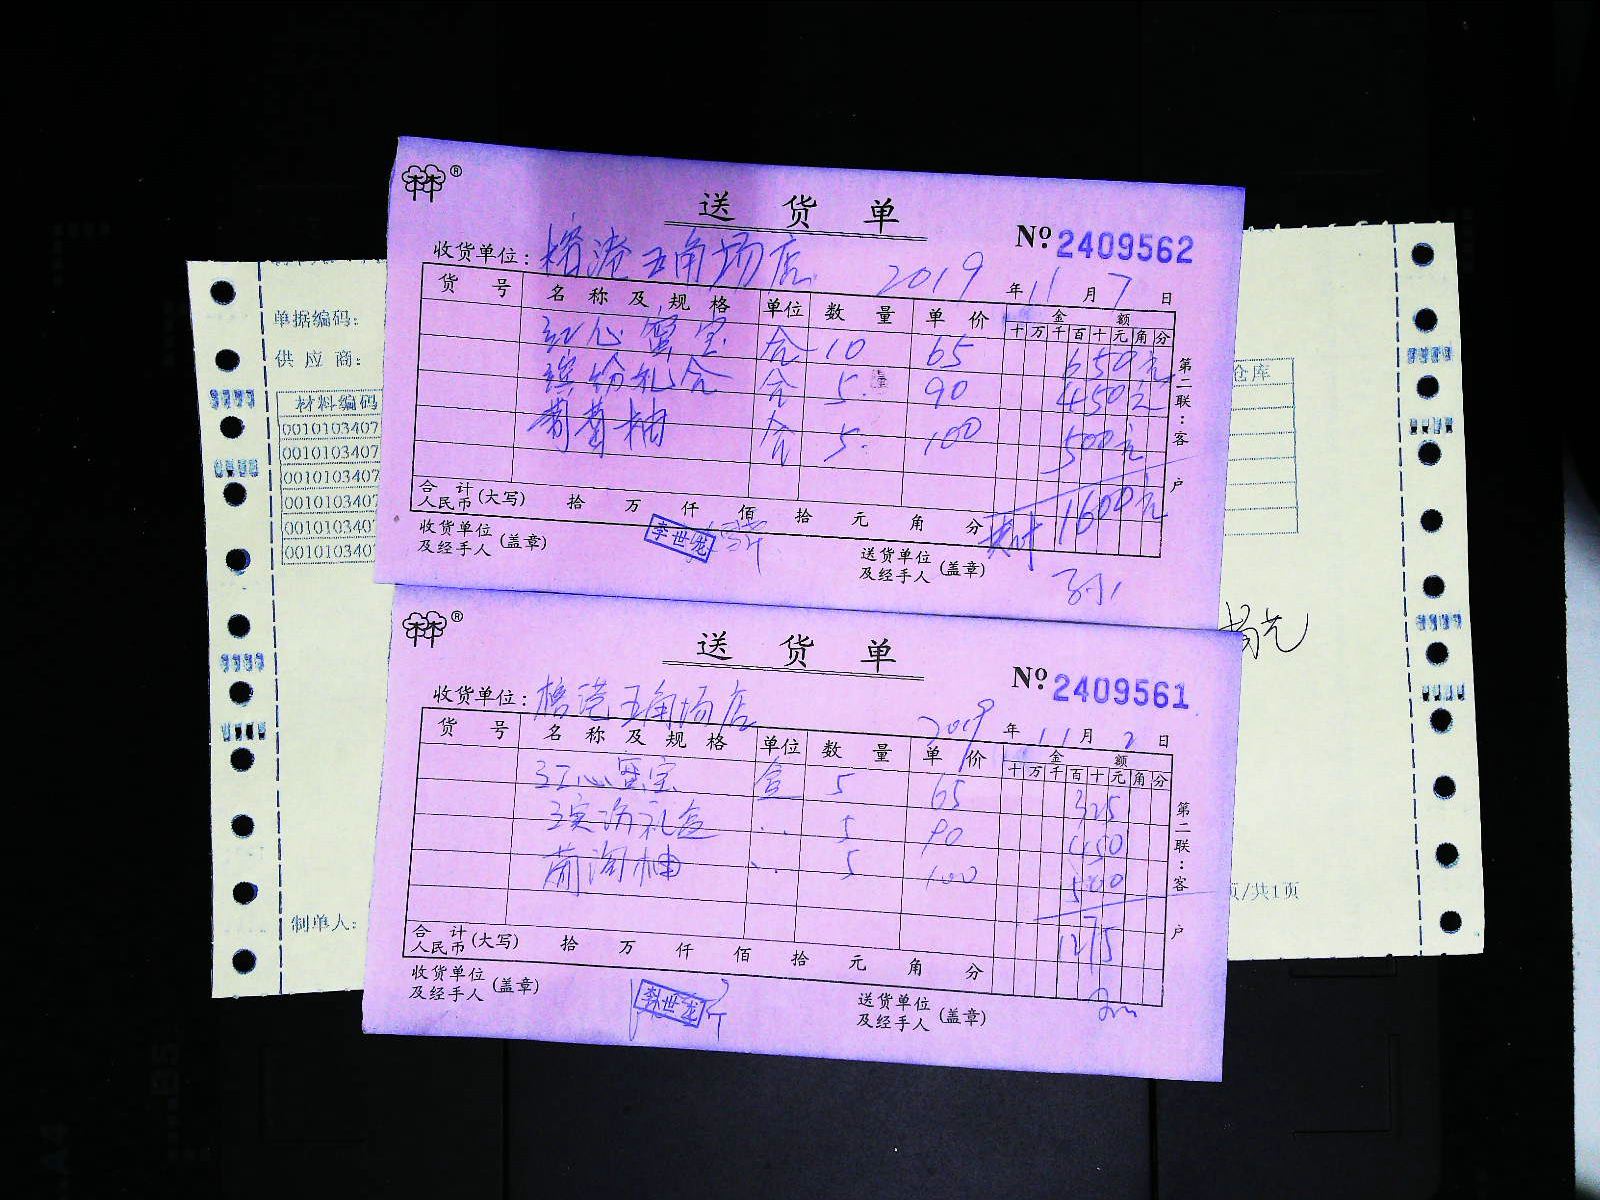 送货单
№ 2409562
收货单位: 榕港五角场店 2019年11月7日
货号 名称及规格 单位 数量 单价 金额
十万千百十元角分
红心蜜宝 合 10 65 650元
缤纷礼合 合 5 90 450元
葡萄柚 合 5 100 500元
合计人民币(大写) 拾 万 仟 佰 拾 元 角 分 共计 1600元
收货单位及经手人(盖章) 李世龙 送货单位及经手人(盖章)
第二联:客户
送货单
№ 2409561
收货单位: 榕港五角场店 2019年11月2日
货号 名称及规格 单位 数量 单价 金额
十万千百十元角分
红心蜜宝 盒 5 65 325
缤纷礼盒 〃 5 90 450
葡萄柚 〃 5 100 500
合计人民币(大写) 拾 万 仟 佰 拾 元 角 分 1275
收货单位及经手人(盖章) 李世龙 送货单位及经手人(盖章)
第二联:客户
单据编码:
供应商:
材料编码 仓库
0010103407
0010103407
0010103407
0010103407
0010103407
0010103407
制单人: 页/共1页